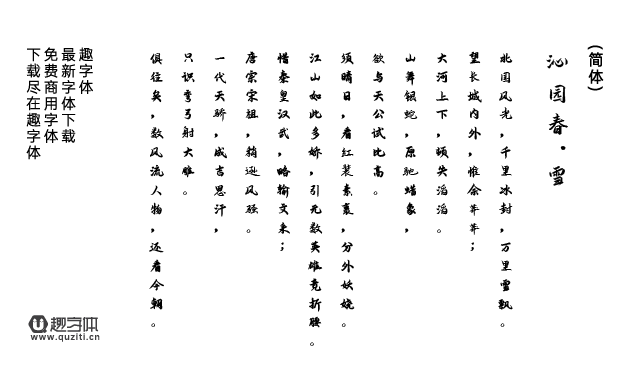 (简体)
沁园春·雪
北国风光，千里冰封，万里雪飘。
望长城内外，惟余莽莽；
大河上下，顿失滔滔。
山舞银蛇，原驰蜡象，
欲与天公试比高。
须晴日，看红装素裹，分外妖娆。
江山如此多娇，引无数英雄竞折腰。
惜秦皇汉武，略输文采；
唐宗宋祖，稍逊风骚。
一代天骄，成吉思汗，
只识弯弓射大雕。
俱往矣，数风流人物，还看今朝。
趣字体
最新字体下载
免费商用字体
下载尽在趣字体
趣字体
www.quziti.cn